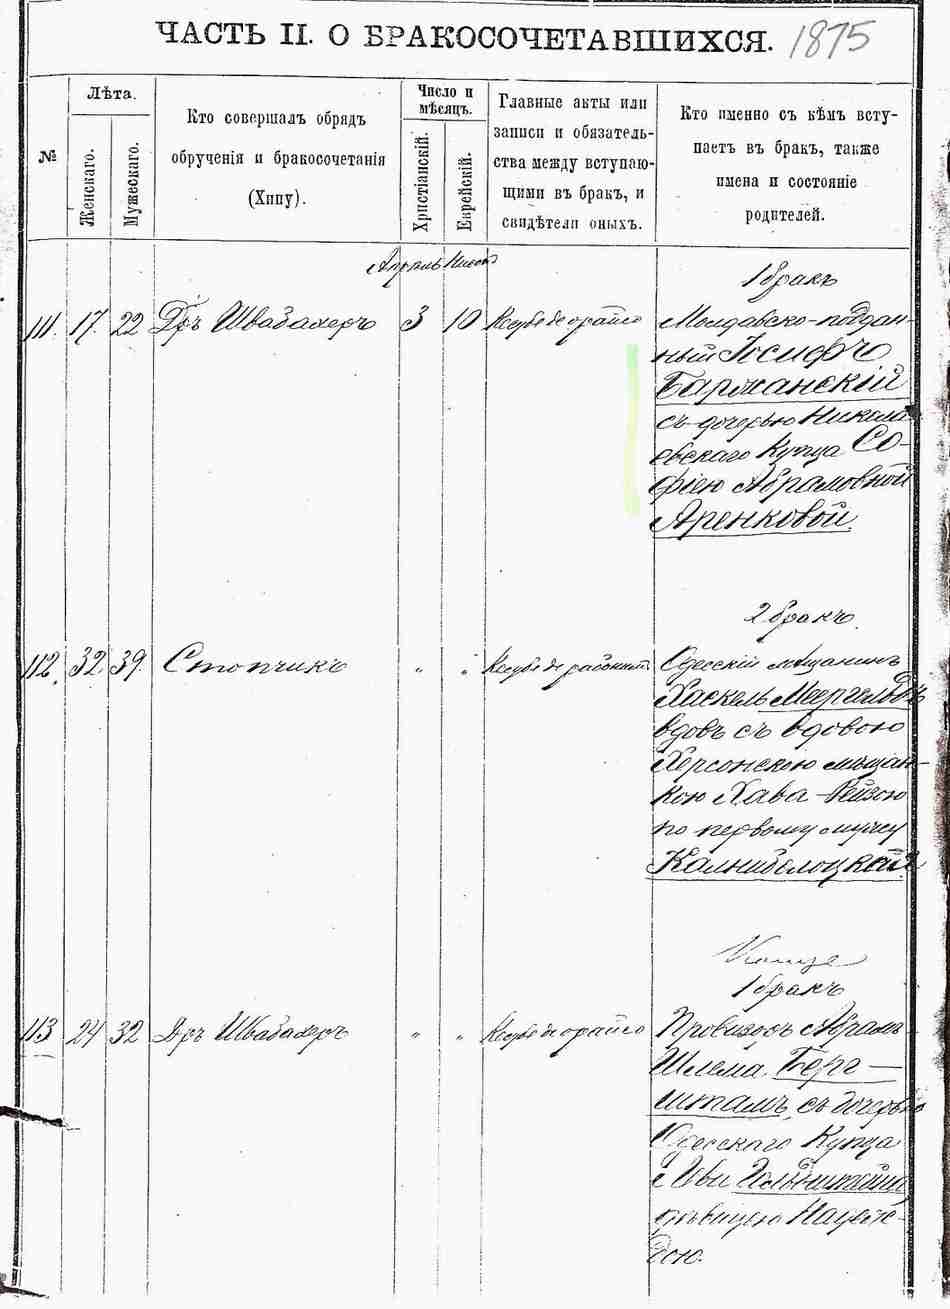 ЧАСТЬ II. О БРАКОСОЧЕТАВШИХСЯ. 1875
№
Лѣта.
Женскаго.
Мужескаго.
Кто совершалъ обрядъ
обрученія и бракосочетанія
(Хипу).
Число и
мѣсяцъ.
Христіанскій.
Еврейскій.
Главные акты или
записи и обязатель-
ства между вступаю-
щими въ бракъ, и
свидѣтели оныхъ.
Кто именно съ кѣмъ всту-
паетъ въ бракъ, также
имена и состояніе
родителей.
Апрель
1 бракъ
111. 17. 22 Дръ Швабахеръ 3 10
Молдавско-поддан-
ный Іосифъ
Барманскій
съ дочерью Никола
евскаго Купца Со-
фіею Абрамовной
Аренковой
2 бракъ.
112. 32 39. Стопчикъ " "
Одесскій мѣщанинъ
Хаскель
вдовъ съ вдовою
Херсонскою мѣщан-
кою Хава-Рейзою
по первому мужу
1 бракъ
113 24 32 Дръ Швабахеръ " "
Провизоръ Абрамъ
Шлема Берг-
штамъ, съ дочерью
Одесскаго Купца
дѣвицею Надеж-
дою.